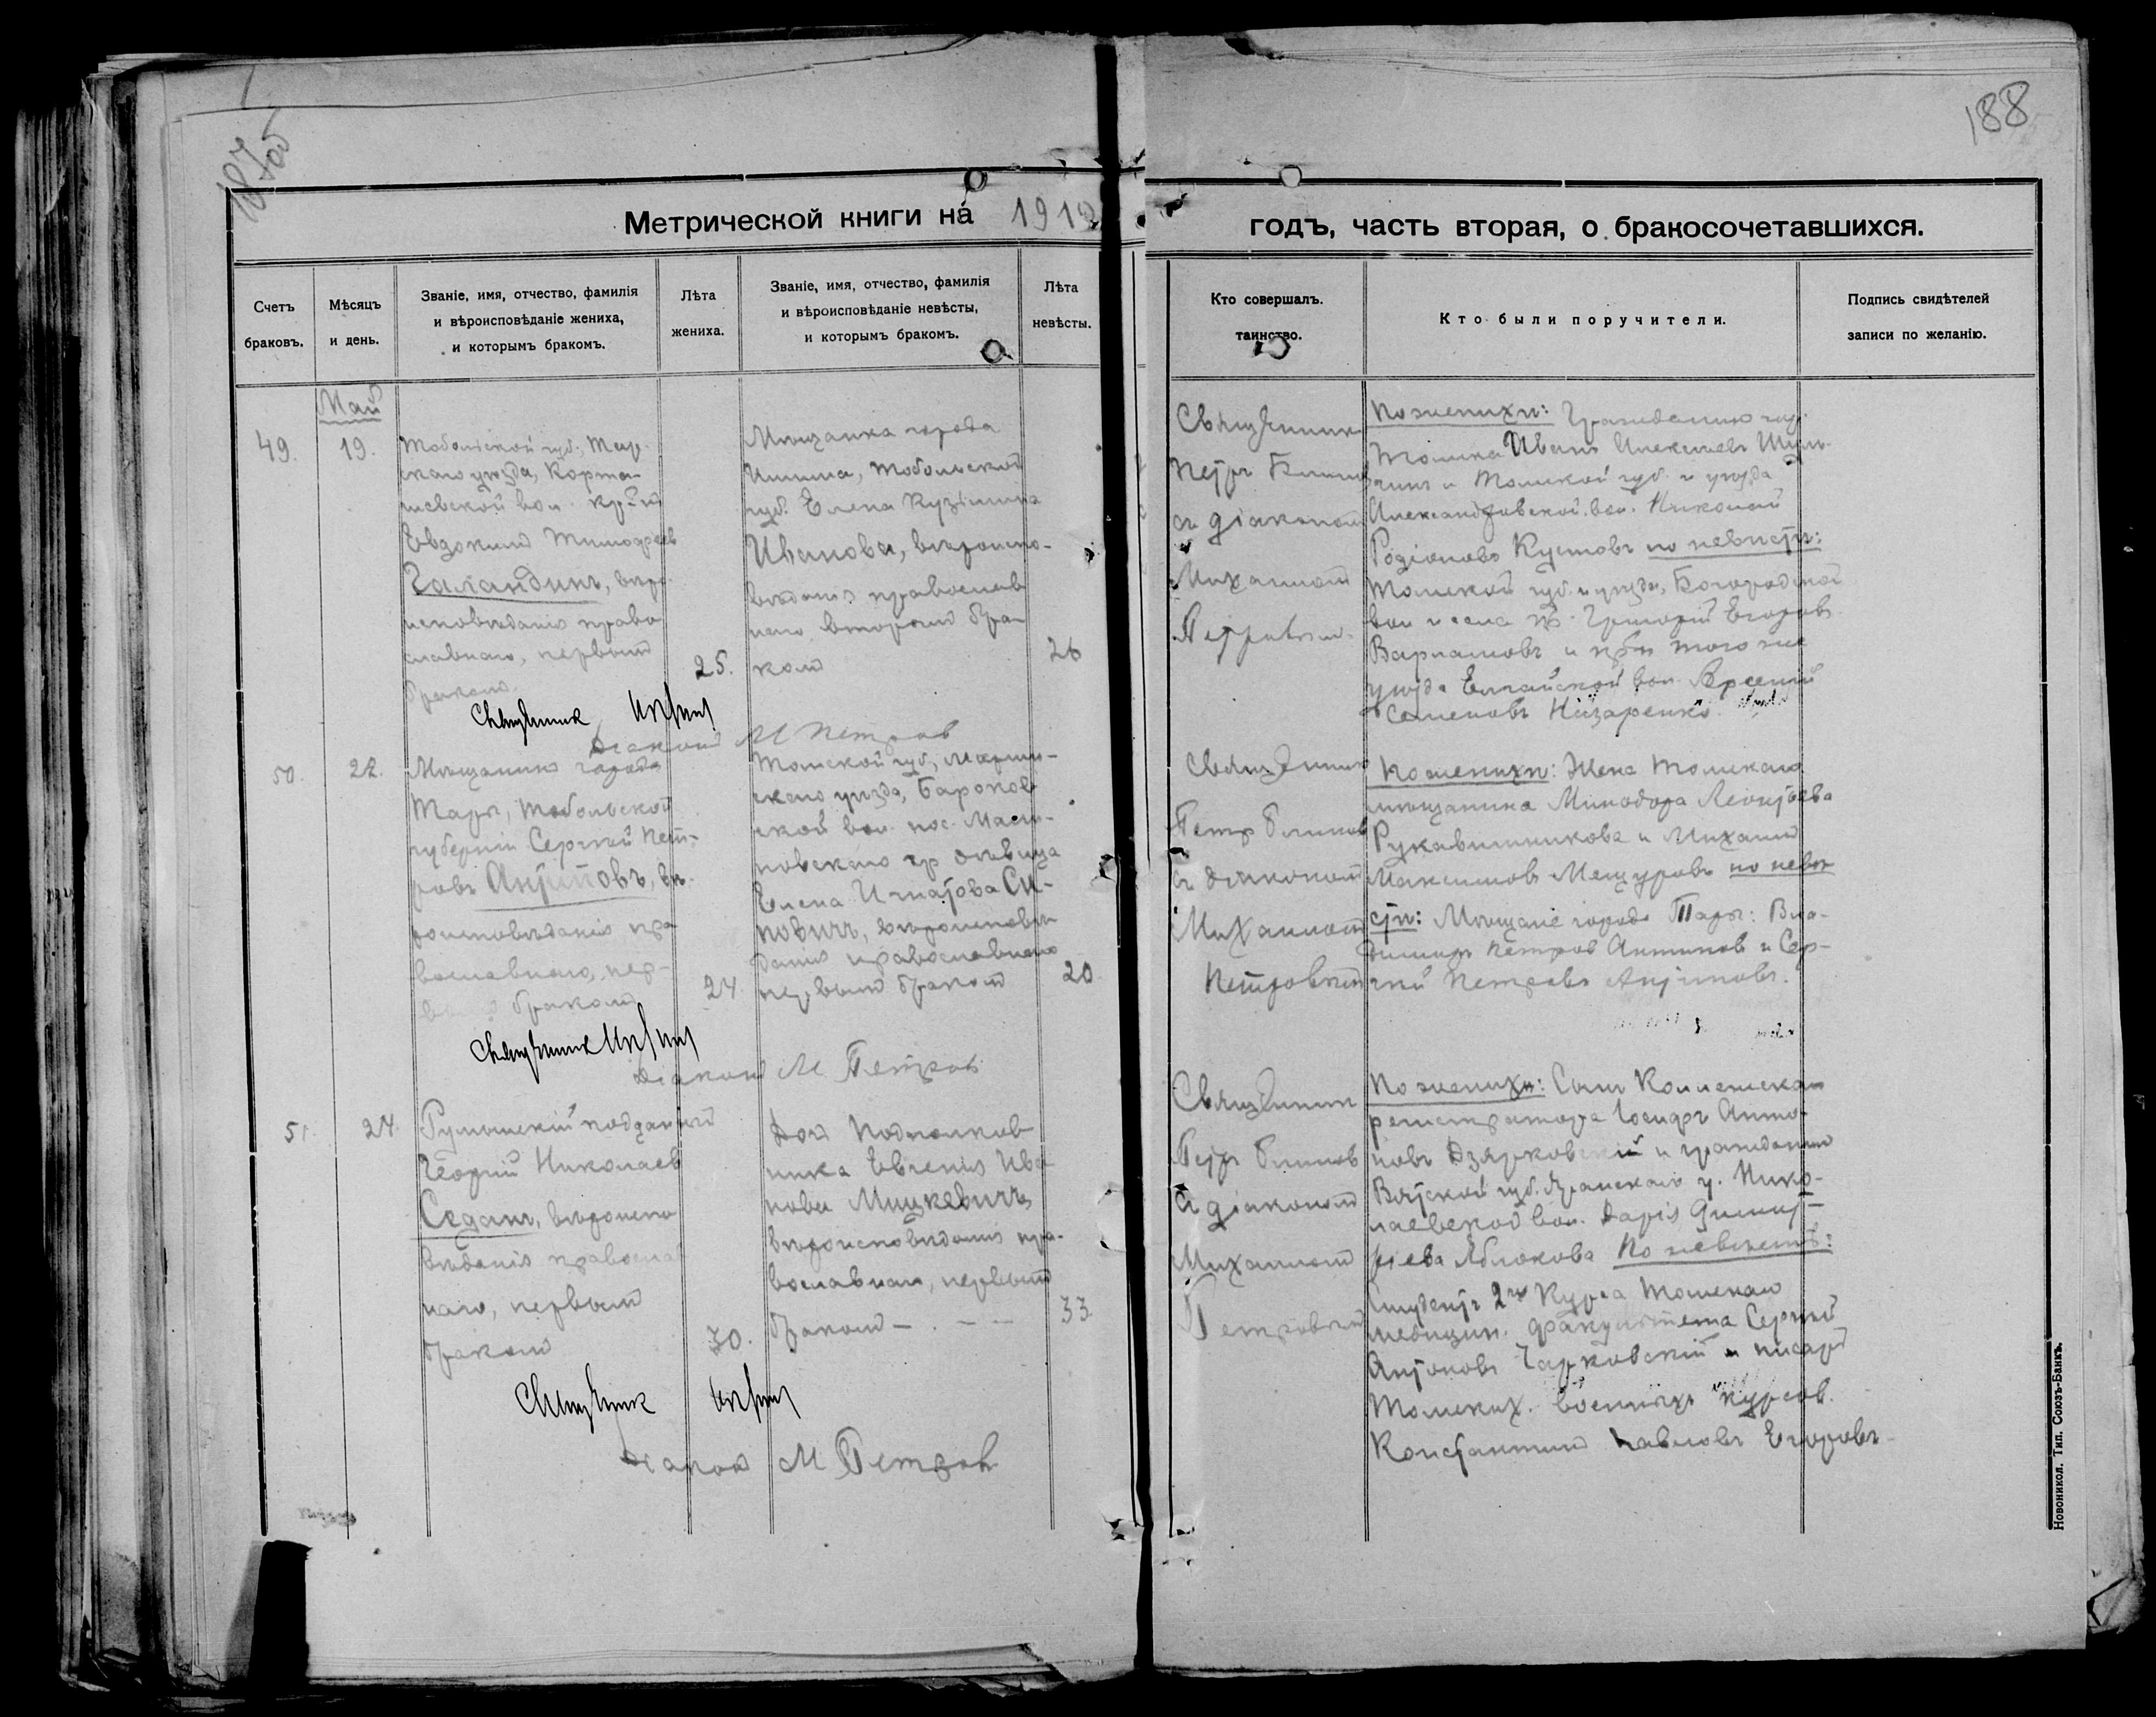 187об
188
Метрической книги на 1919
годъ, часть вторая, о бракосочетавшихся.
Счетъ браковъ.
Мѣсяцъ и день.
Званіе, имя, отчество, фамилія
и вѣроисповѣданіе жениха,
и которымъ бракомъ.
Лѣта
жениха.
Званіе, имя, отчество, фамилія
и вѣроисповѣданіе невѣсты,
и которымъ бракомъ.
Лѣта
невѣсты.
Кто совершалъ.
таинство.
Кто были поручители.
Подпись свидѣтелей
записи по желанію.
Май
49.
19.
Тобольской губ., Тар-
скаго уѣзда, Карта-
шевской вол. кр-нъ
Евдокимъ Тимофеев
Галандинъ, вѣро-
исповѣданія право
славнаго, первымъ
бракомъ.
25.
Мѣщанка города
Ишима, Тобольской
губ. Елена Кузьмина
Иванова, вѣроиспо-
вѣданія православ
наго, вторымъ бра-
комъ
26
Священник
Діаконъ М Петров
Священникъ
Петръ Блинов
съ діакономъ
Михаиломъ
Петровым.
По женихѣ: Гражданинъ гор.
Томска Иванъ Алексѣевъ
и Томской губ. и уѣзда
Александровской вол. Николай
Родіоновъ Кустовъ по невѣстѣ:
Томской губ. и уѣзда, Богородской
вол. и села Григорій Егоровъ
Варламовъ и кр-нъ того же
уѣзда Елгайской вол. Арсеній
Семеновъ Назаренко.
50.
22.
Мѣщанинъ города
Тары, Тобольской
губерніи Сергѣй Пет-
ровъ Антиповъ, вѣ-
роисповѣданія пра
вославнаго, пер-
вымъ бракомъ
24.
Томской губ., Маріин-
скаго уѣзда, Бароков
ской вол. пос.
новскаго гр дѣвица
Елена Игнатова Си-
новичъ, вѣроисповѣ
данія православнаго
первымъ бракомъ
20.
Священник
Діаконъ М Петров
Священникъ
Петръ Блинов
съ діакономъ
Михаиломъ
Петровымъ
По женихѣ: Жена Томскаго
мѣщанина Минодора Леонтьева
Рукавишникова и Михаилъ
Максимовъ Мещуровъ по невѣ
стѣ: Мѣщане города Тары: Вла-
димиръ Петров Антипов и Сер-
гѣй Петровъ Антиповъ.
51.
24.
Румынскій подданый
Георгій Николаев
Седанъ, вѣроиспо
вѣданія православ
наго, первымъ
бракомъ
30.
Дочь Подполков
ника Евгенія Ива
нова Мицкевичъ
вѣроисповѣданія пра-
вославнаго, первымъ
бракомъ
33.
Священник
Діакон М Петров
Священник
Петръ Блинов
съ діакономъ
Михаиломъ
Петровымъ
По женихѣ: Сынъ Коллежскаго
регистратора Іосифъ Анто-
новъ Дзярковскій и гражданинъ
Вятской губ. Яранскаго у. Нико-
лаевской вол. Дарія Димит-
ріева Яблокова По невѣстѣ:
Студентъ 2го курса Томскаго
медицин. факультета Сергѣй
Антоновъ Чарковскій и писарь
Томских. военныхъ курсов.
Константинъ Павловъ Егоровъ.
Новоникол. Тип. Союзъ-Банкъ.